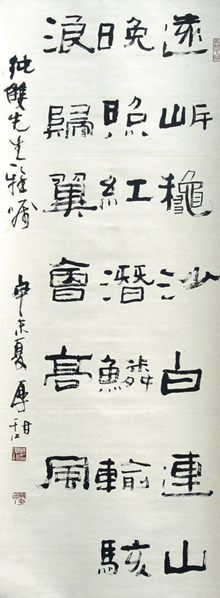 遠岸穐沙白連山
晚照紅潛鱗輸駭
浪歸翼會高風
純雙先生雅嘱
辛未夏